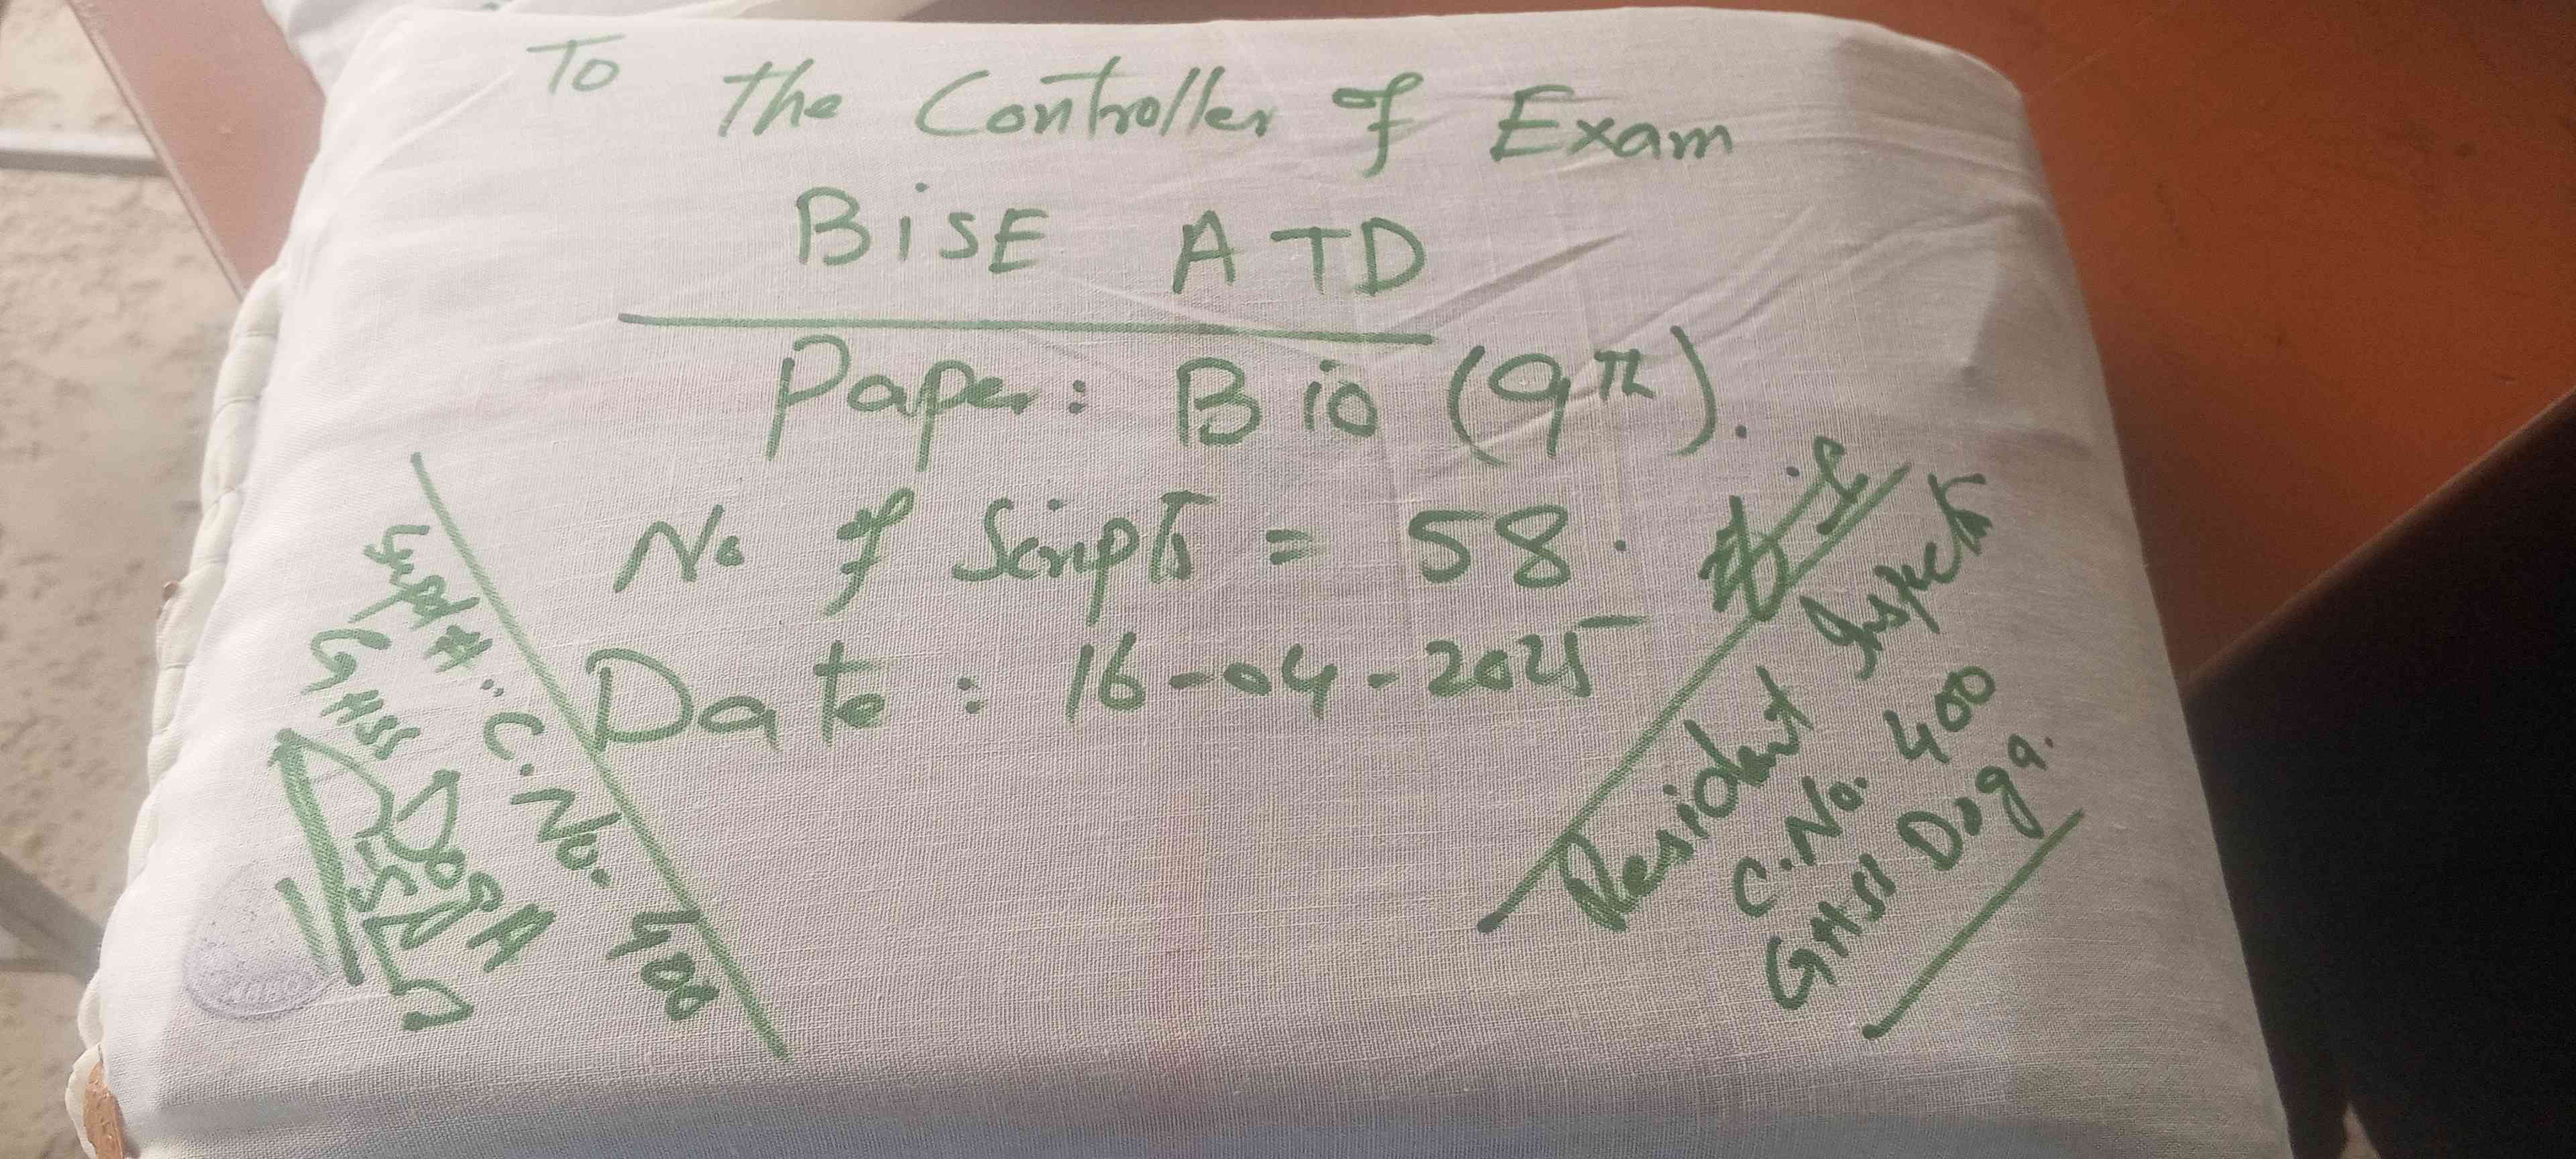 To
The Controller of Exam
BiSE ATD
Paper: Bio (9th).
No of Scripts = 58.
Date: 16-04-2025
Supdtt: C.No. 400
GHSS DogA
Resident Inspector
C.No. 400
GHSS Doga.